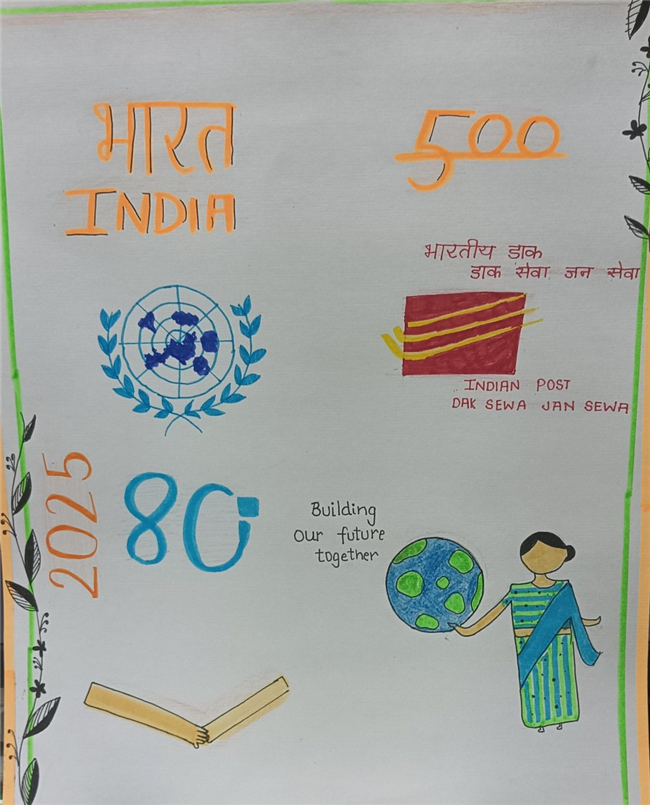 भारत
INDIA
500
भारतीय डाक
डाक सेवा जन सेवा
INDIAN POST
DAK SEWA JAN SEWA
2025
80
Building
our future
together